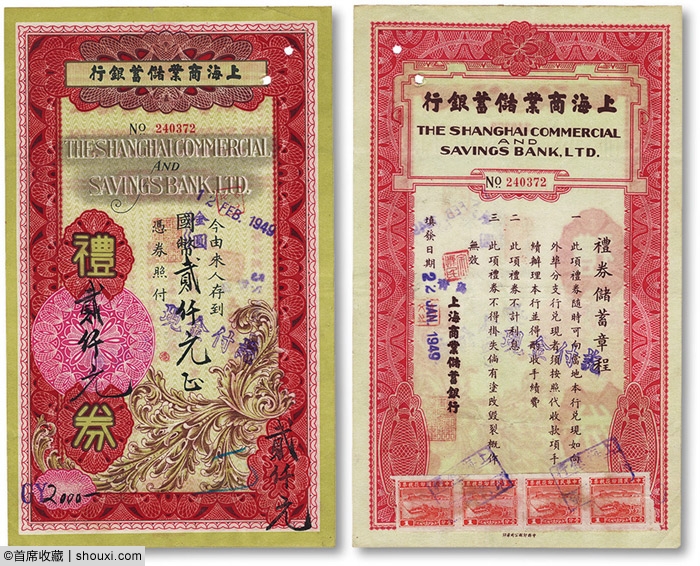 上海商業儲蓄銀行
No 240372
THE SHANGHAI COMMERCIAL
AND
SAVINGS BANK, LTD.
12 FEB. 1949
金圓
今由來人存到
國幣貳仟元正
憑券照付
禮券
貳仟元
貳仟元
GY2000—
上海商業儲蓄銀行
THE SHANGHAI COMMERCIAL
AND
SAVINGS BANK, LTD.
No 240372
禮券儲蓄章程
一 此項禮券隨時可向當地本行兌現如向
外埠分支行兌現者須按照代收款項手
續辦理本行並得酌收手續費
二 此項禮券不計利息
三 此項禮券不得掛失倘有塗改毀裂概作
無效
填發日期 22 JAN. 1949
上海商業儲蓄銀行
©首席收藏 | shouxi.com